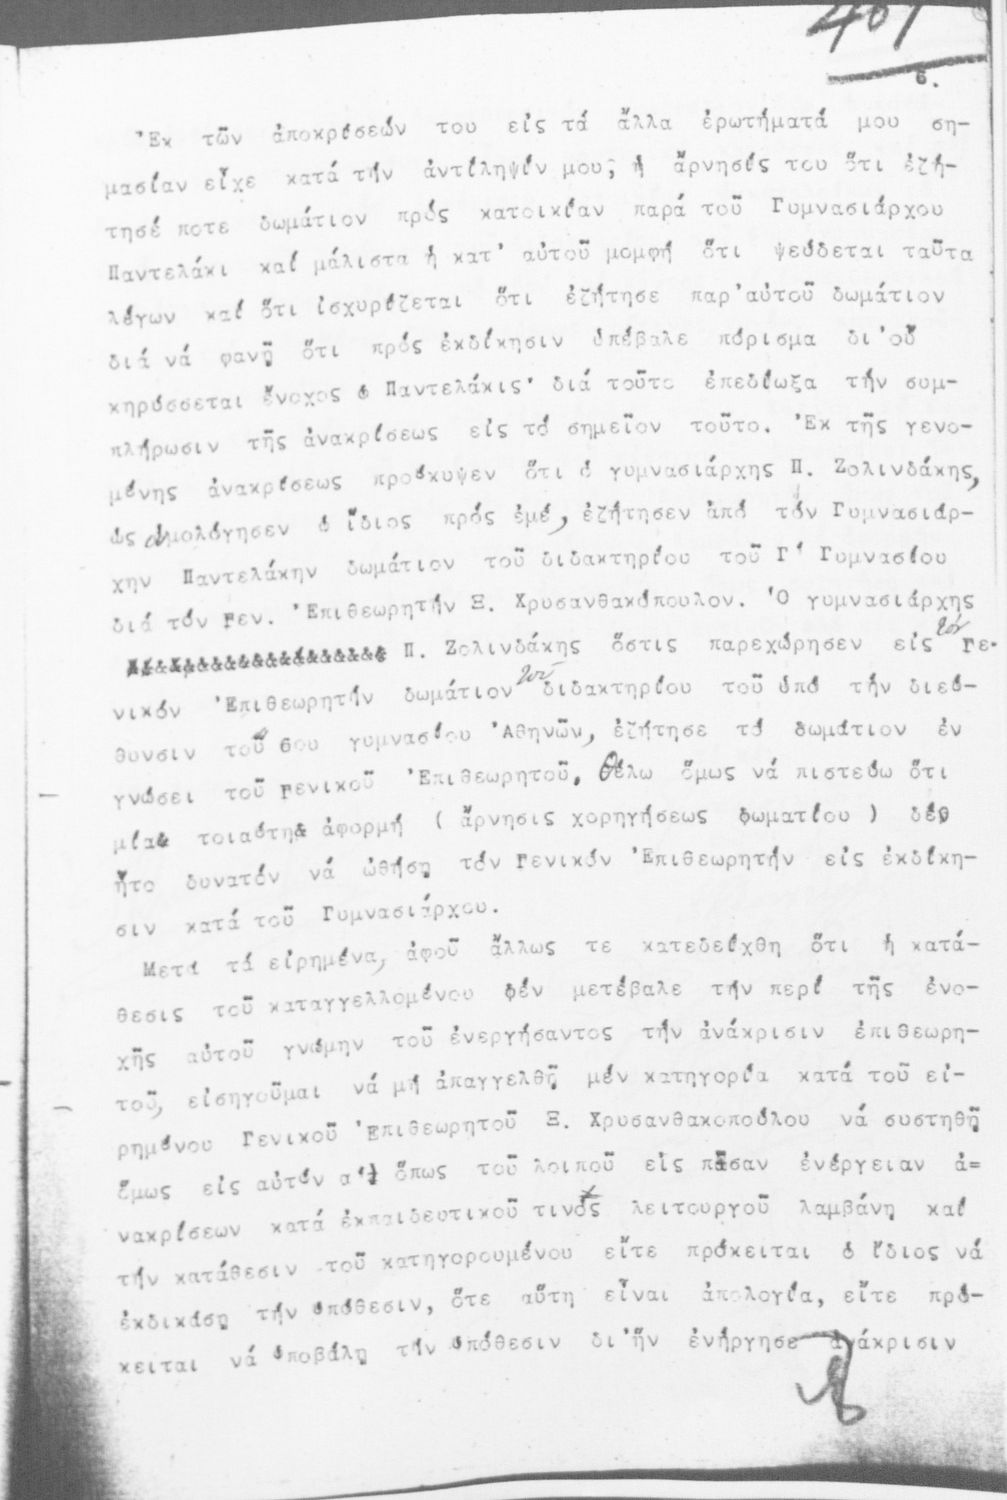 461
6.
Ἐκ τῶν ἀποκρίσεών του εἰς τά ἄλλα ἐρωτήματά μου ση-
μασίαν εἶχε κατά τήν ἀντίληψίν μου, ἡ ἄρνησίς του ὅτι ἐζή-
τησέ ποτε δωμάτιον πρός κατοικίαν παρά τοῦ Γυμνασιάρχου
Παντελάκι καί μάλιστα ἡ κατ' αὐτοῦ μομφή ὅτι ψεύδεται ταῦτα
λέγων καί ὅτι ἰσχυρίζεται ὅτι ἐζήτησε παρ'αὐτοῦ δωμάτιον
διά νά φανῇ ὅτι πρός ἐκδίκησιν ὑπέβαλε πόρισμα δι'οὗ
κηρύσσεται ἔνοχος ὁ Παντελάκις· διά τοῦτο ἐπεδίωξα τήν συμ-
πλήρωσιν τῆς ἀνακρίσεως εἰς τό σημεῖον τοῦτο. Ἐκ τῆς γενο-
μένης ἀνακρίσεως προέκυψεν ὅτι ὁ γυμνασιάρχης Π. Ζολινδάκης,
ὡς ὡμολόγησεν ὁ ἴδιος πρός ἐμέ, ἐζήτησεν ἀπό τόν Γυμνασιάρ-
χην Παντελάκην δωμάτιον τοῦ διδακτηρίου τοῦ Γ' Γυμνασίου
διά τόν Γεν. Ἐπιθεωρητήν Ξ. Χρυσανθακόπουλον. Ὁ γυμνασιάρχης
Π. Ζολινδάκης ὅστις παρεχώρησεν εἰς τόν Γε-
νικόν Ἐπιθεωρητήν δωμάτιον τοῦ διδακτηρίου τοῦ ὑπό τήν διεύ-
θυνσιν τοῦ 6ου γυμνασίου Ἀθηνῶν, ἐζήτησε τό δωμάτιον ἐν
γνώσει τοῦ Γενικοῦ Ἐπιθεωρητοῦ. Θέλω ὅμως νά πιστεύω ὅτι
μία τοιαύτη ἀφορμή ( ἄρνησις χορηγήσεως δωματίου ) δέν
ἦτο δυνατόν νά ὠθήσῃ τόν Γενικόν Ἐπιθεωρητήν εἰς ἐκδίκη-
σιν κατά τοῦ Γυμνασιάρχου.
Μετά τά εἰρημένα, ἀφοῦ ἄλλως τε κατεδείχθη ὅτι ἡ κατά-
θεσις τοῦ καταγγελλομένου δέν μετέβαλε τήν περί τῆς ἐνο-
χῆς αὐτοῦ γνώμην τοῦ ἐνεργήσαντος τήν ἀνάκρισιν ἐπιθεωρη-
τοῦ, εἰσηγοῦμαι νά μή ἀπαγγελθῇ μέν κατηγορία κατά τοῦ εἰ-
ρημένου Γενικοῦ Ἐπιθεωρητοῦ Ξ. Χρυσανθακοπούλου νά συστηθῇ
ὅμως εἰς αὐτόν α') ὅπως τοῦ λοιποῦ εἰς πᾶσαν ἐνέργειαν ἀ=
νακρίσεων κατά ἐκπαιδευτικοῦ τινός λειτουργοῦ λαμβάνῃ καί
τήν κατάθεσιν τοῦ κατηγορουμένου εἴτε πρόκειται ὁ ἴδιος νά
ἐκδικάσῃ τήν ὑπόθεσιν, ὅτε αὕτη εἶναι ἀπολογία, εἴτε πρό-
κειται νά ὑποβάλῃ τήν ὑπόθεσιν δι'ἥν ἐνήργησε ἀνάκρισιν